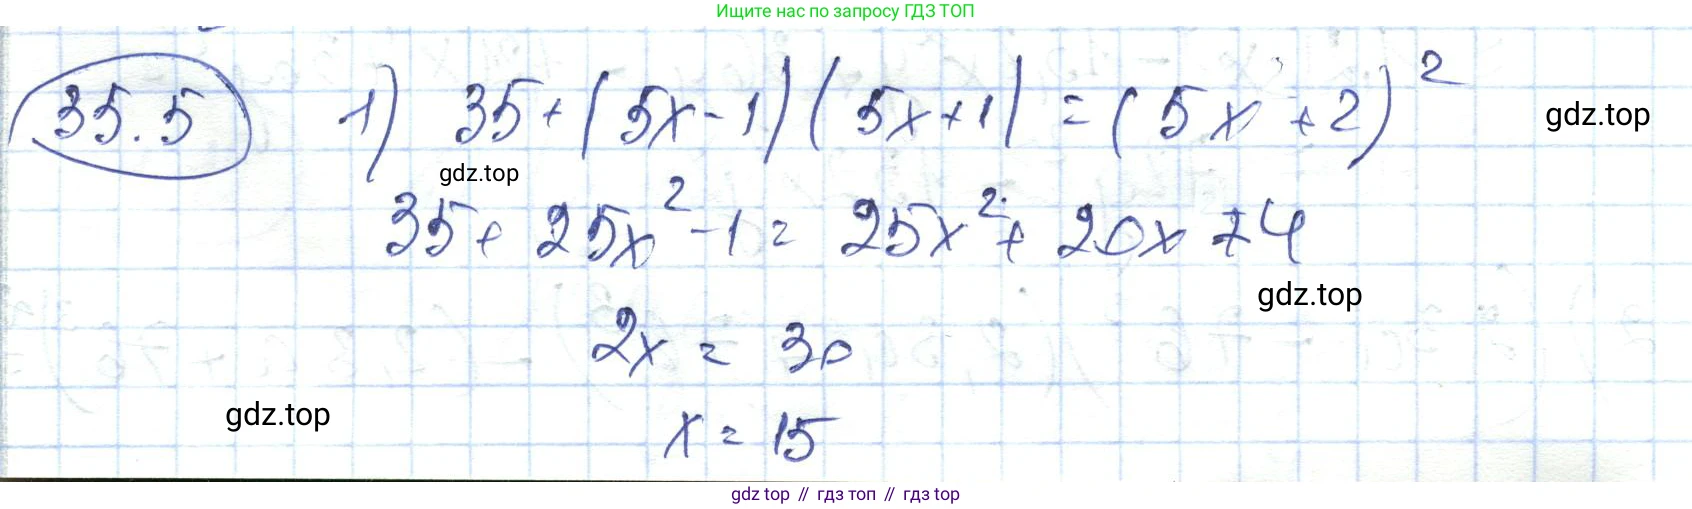 Ищите нас по запросу ГДЗ ТОП
35.5 1) 35+(5x-1)(5x+1)=(5x+2)²
gdz.top
gdz.top
35+25x²-1=25x²+20x+4
gdz.top
2x=30
gdz.top
x=15
gdz top // гдз топ // гдз top